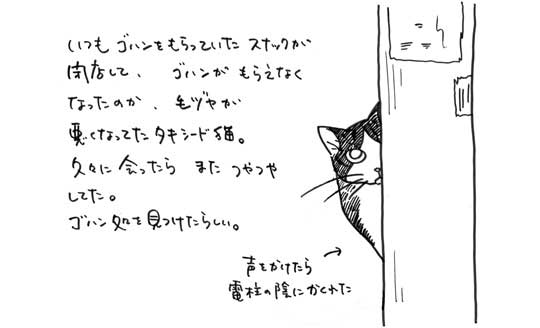 いつも ゴハンをもらっていた スナックが
閉店して、 ゴハンが もらえなく
なったのか、 毛ヅヤが
悪くなってた タキシード猫。
久々に 会ったら また つやつや
してた。
ゴハン処を見つけたらしい。
声をかけたら
電柱の陰にかくれた